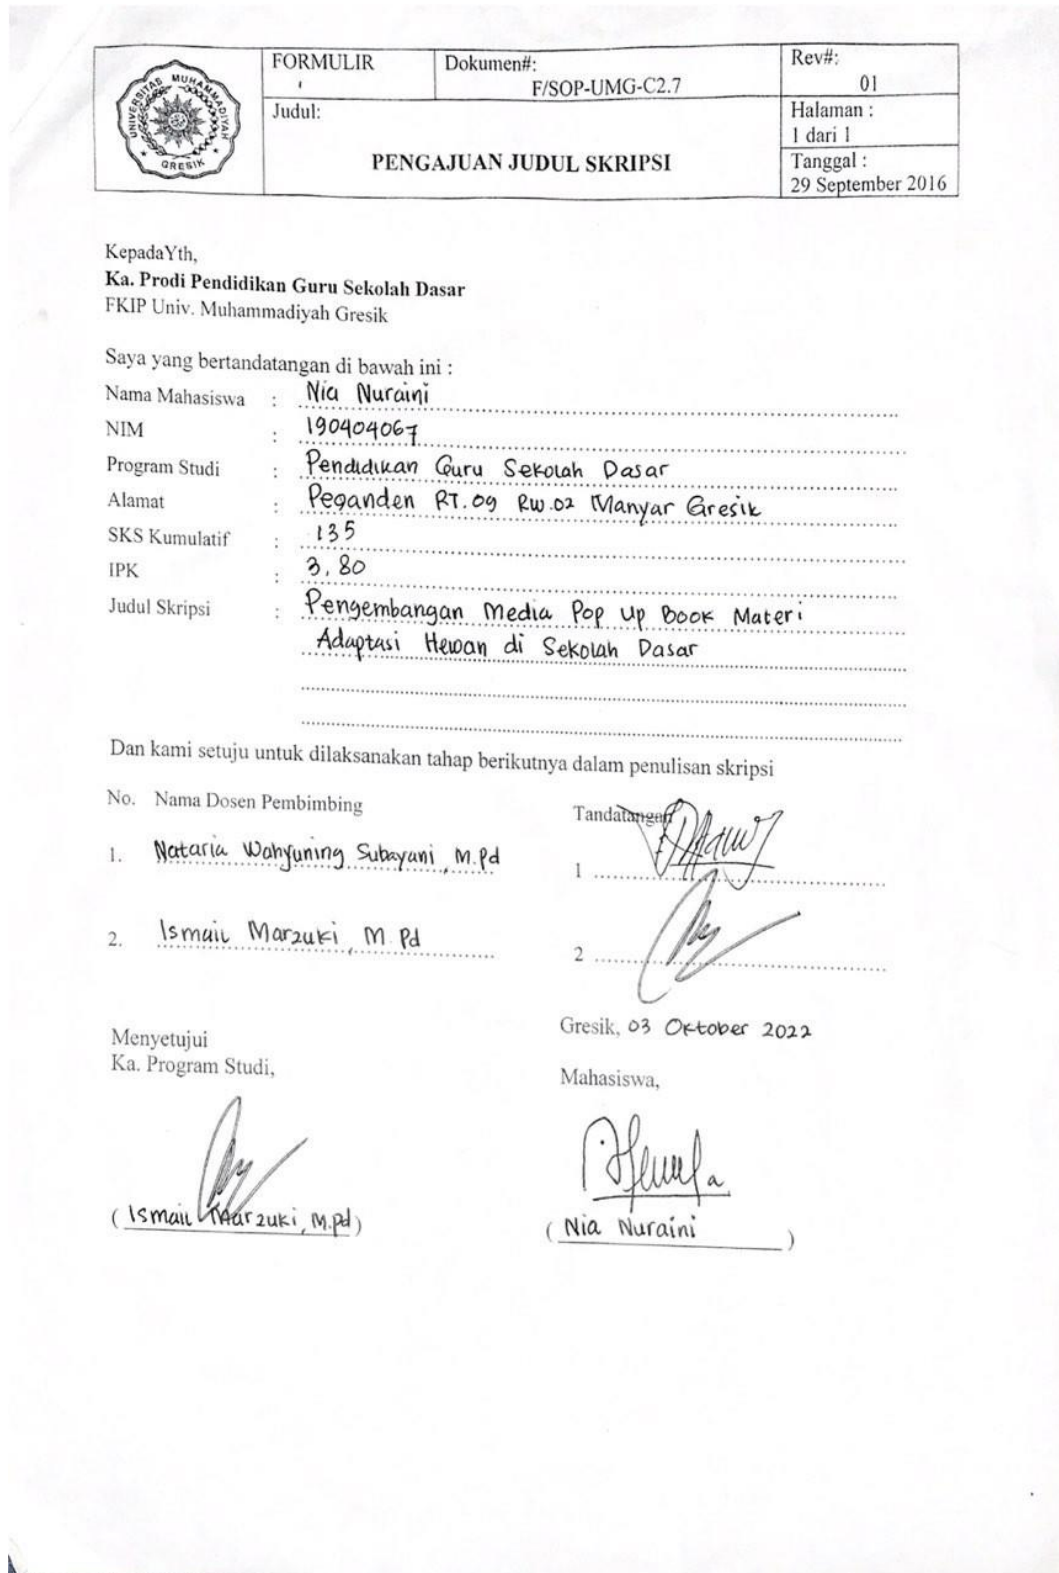 UNIVERSITAS MUHAMMADIYAH
GRESIK
FORMULIR
Dokumen#:
F/SOP-UMG-C2.7
Rev#:
01
Judul:
PENGAJUAN JUDUL SKRIPSI
Halaman :
1 dari 1
Tanggal :
29 September 2016
KepadaYth,
Ka. Prodi Pendidikan Guru Sekolah Dasar
FKIP Univ. Muhammadiyah Gresik
Saya yang bertandatangan di bawah ini :
Nama Mahasiswa : Nia Nuraini
NIM : 190404067
Program Studi : Pendidikan Guru Sekolah Dasar
Alamat : Peganden RT.09 RW.02 Manyar Gresik
SKS Kumulatif : 135
IPK : 3,80
Judul Skripsi : Pengembangan Media Pop Up Book Materi
Adaptasi Hewan di Sekolah Dasar
Dan kami setuju untuk dilaksanakan tahap berikutnya dalam penulisan skripsi
No. Nama Dosen Pembimbing Tandatangan
1. Nataria Wahyuning Subayani, M.Pd 1
2. Ismail Marzuki, M.Pd 2
Gresik, 03 Oktober 2022
Menyetujui
Ka. Program Studi,
Mahasiswa,
(Ismail Marzuki, M.Pd)
(Nia Nuraini)